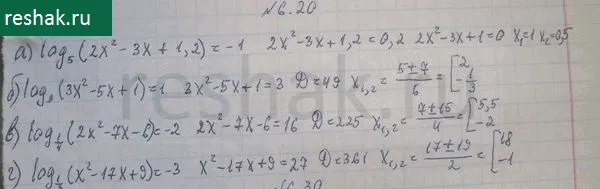 reshak.ru
№6.20
а) log₅(2x²-3x+1,2)=-1 2x²-3x+1,2=0,2 2x²-3x+1=0 x₁=1 x₂=0,5
б) log₃(3x²-5x+1)=1 3x²-5x+1=3 D=49 x₁,₂=(5±7)/6=[2; -1/3
в) log₁/₄(2x²-7x-6)=-2 2x²-7x-6=16 D=225 x₁,₂=(7±15)/4=[5,5; -2
г) log₁/₃(x²-17x+9)=-3 x²-17x+9=27 D=361 x₁,₂=(17±19)/2=[18; -1